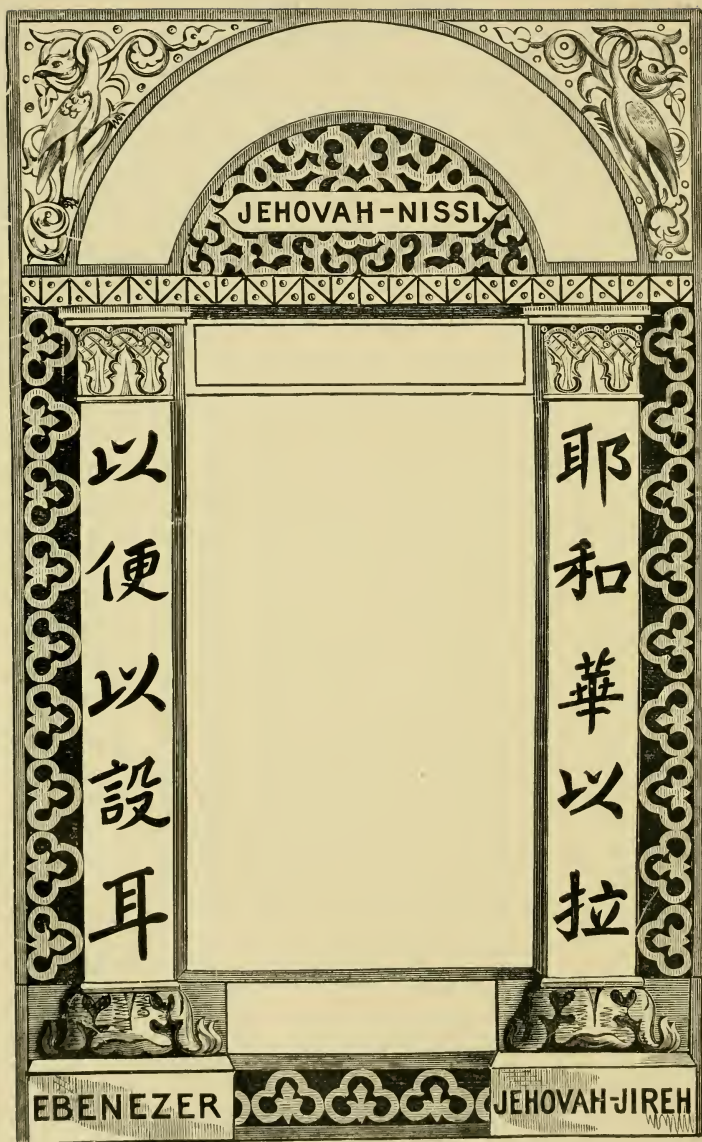 JEHOVAH-NISSI.
耶和華以拉
以便以設耳
EBENEZER
JEHOVAH-JIREH